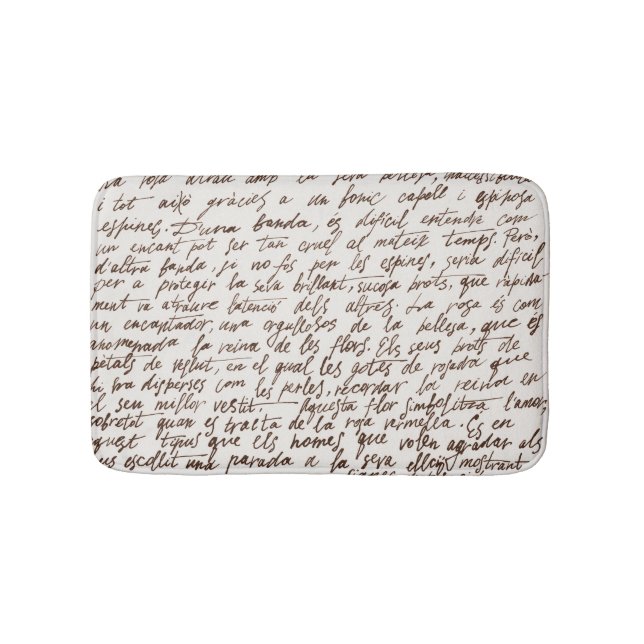 rosa atrau amb la seva bellesa, inaccessible
i tot això gràcies a un fonic capell i espinosa
espines. D'una banda, és difícil entendre com
un encant pot ser tan cruel al mateix temps. Però,
d'altra banda, si no fos per les espines, seria difícil
per a protegir la seva brillant, sucosa brots, que ràpida
ment va atraure latenció dels altres. La rosa és com
un encantador, una orgullosos de la bellesa, que és
anomenada la reina de les flors. Els seus brots de
pètals de vellut, en el qual les gotes de rosada que
hi ha disperses com les perles, recordar la reina en
el seu millor vestit. Aquesta flor simbolitza l'amor,
sobretot quan es tracta de la rosa vermella. És en
quest tipus que els homes que volen agradar als
us escollit una parada a la seva elecció, mostrant